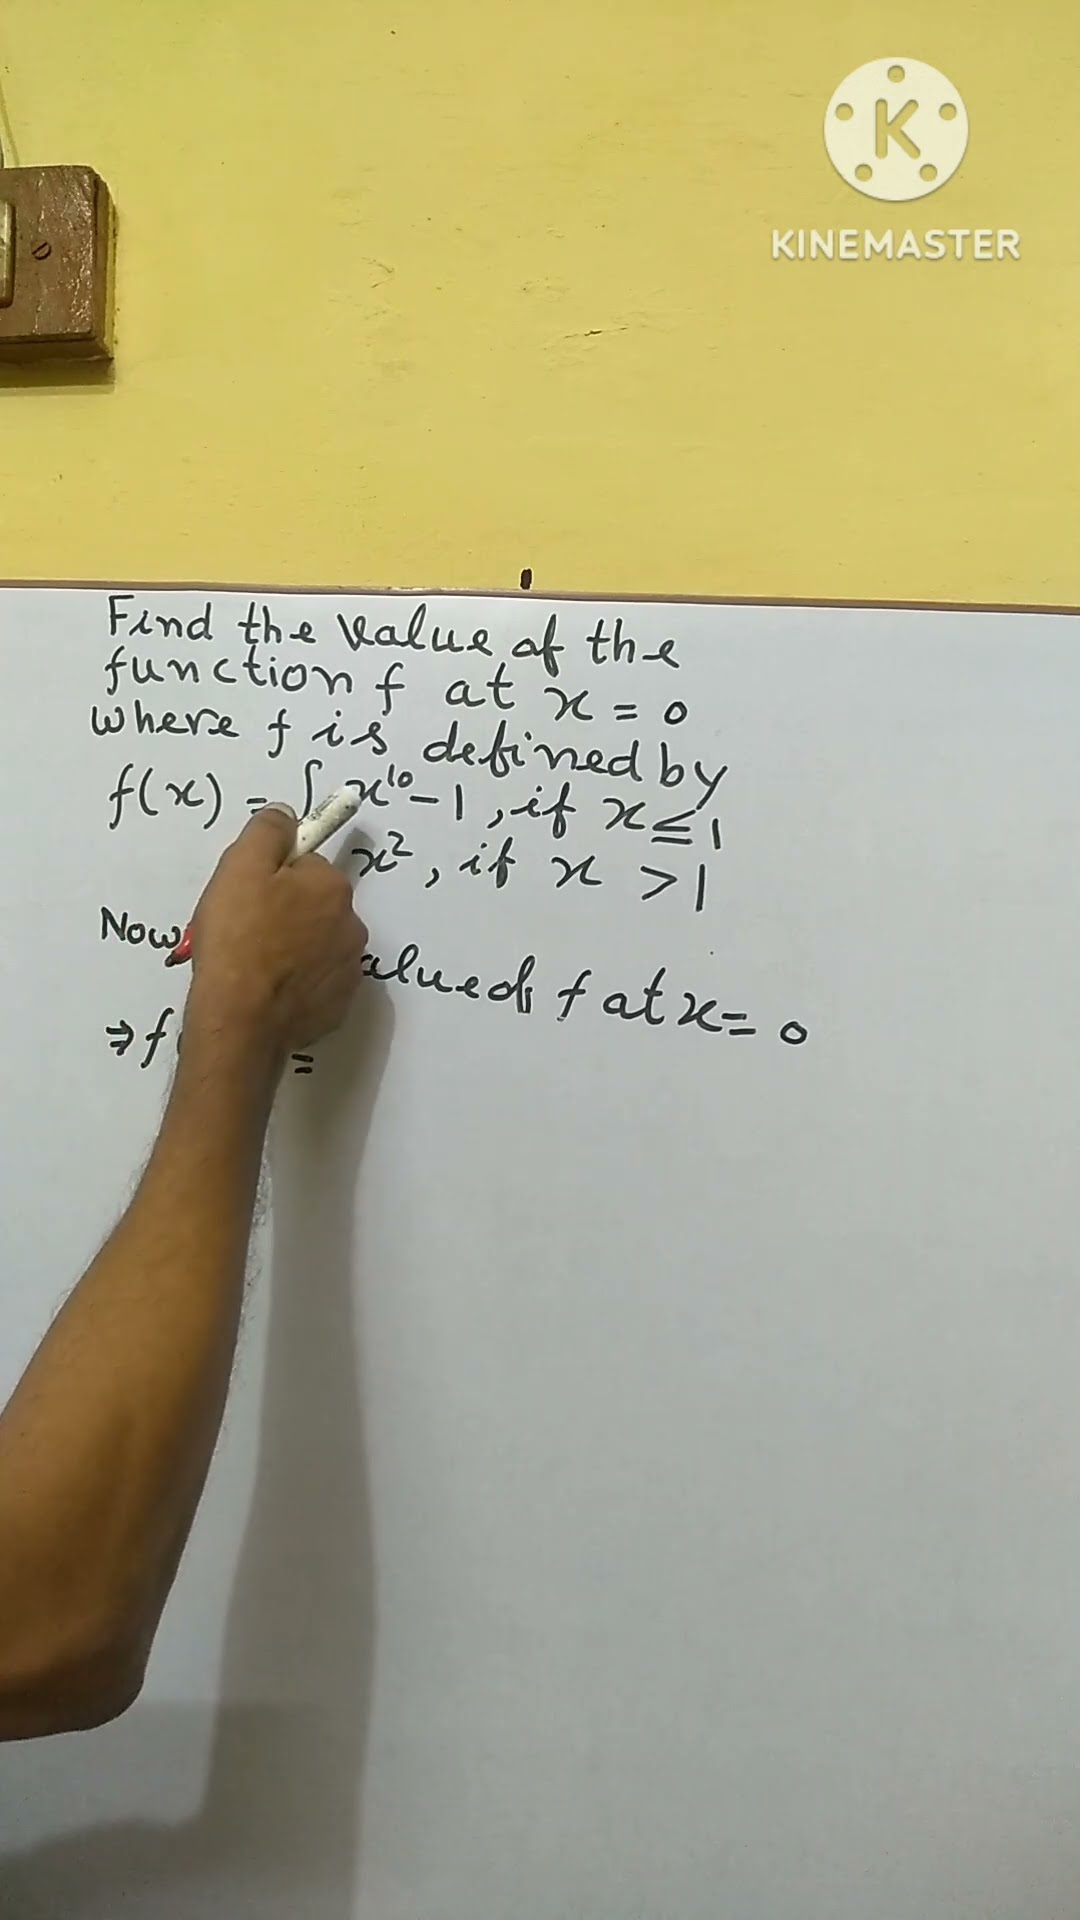 KINEMASTER
Find the value of the
function f at x = 0
where f is defined by
f(x) = x¹⁰ - 1, if x ≤ 1
x², if x > 1
Now f at x = 0
⇒ f =